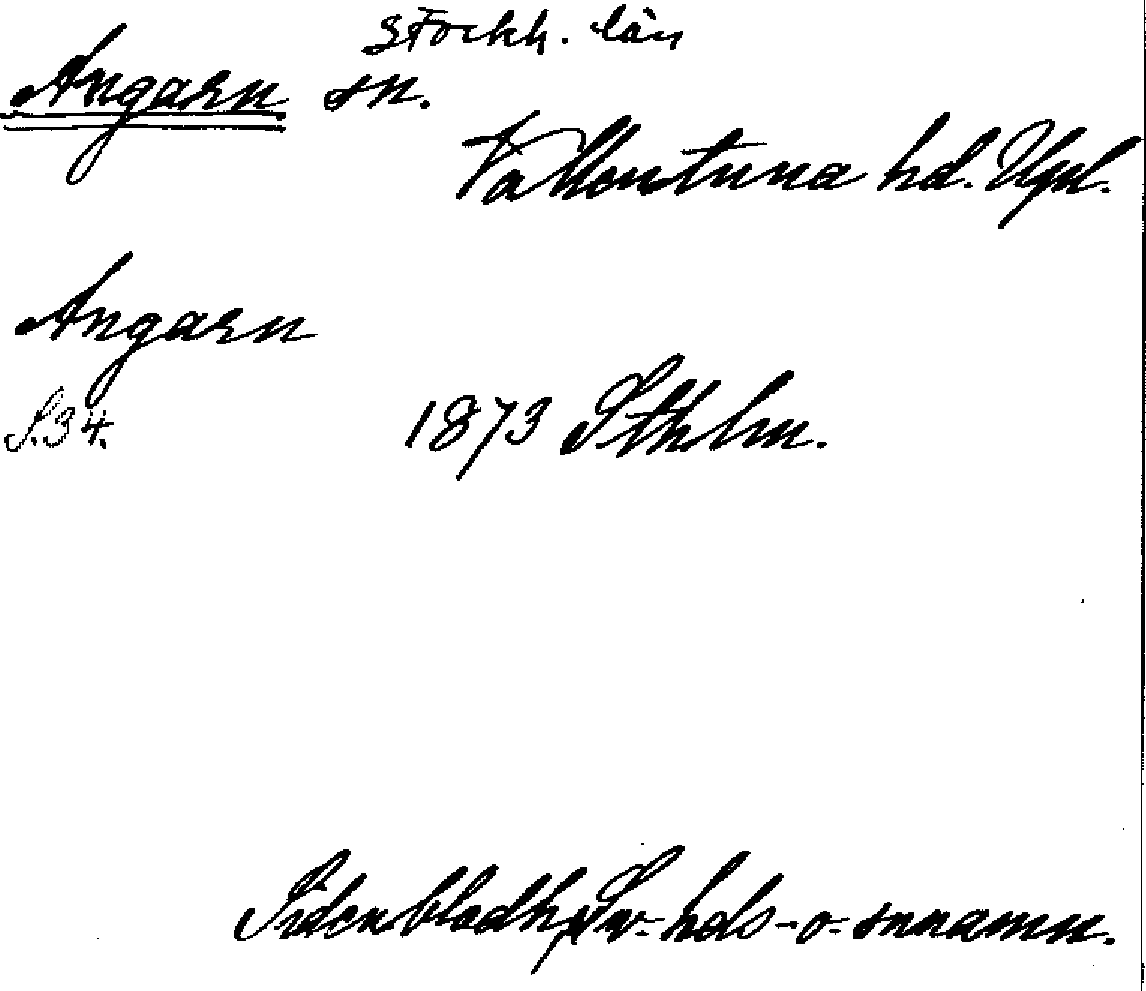 Stockh. län
Angarn sn.
Vallentuna hd. Upl.
Angarn
S.34. 1873 Sthlm.
Sidenbladh, Sv- hds-o-snnamn.